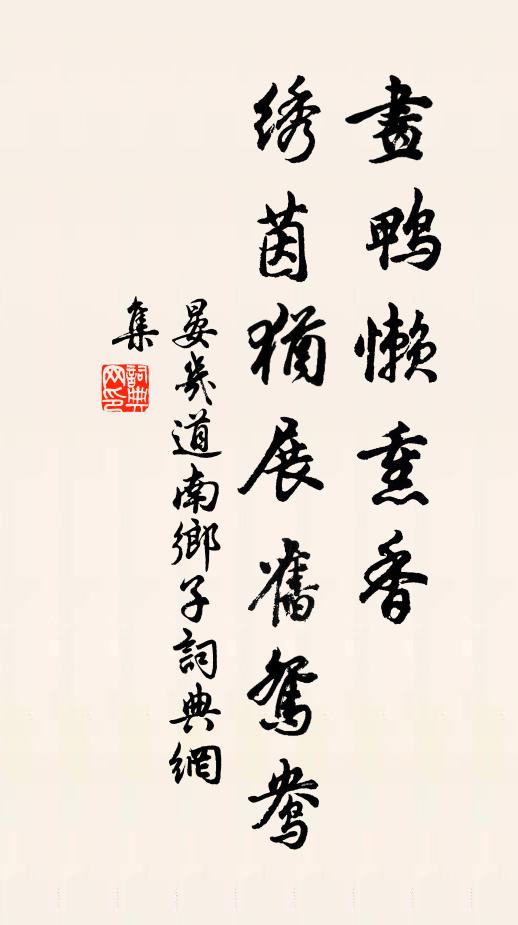 畫鴨懶熏香
绣茵猶展舊鴛鴦
晏幾道南鄉子詞典網
集
詞典
网印